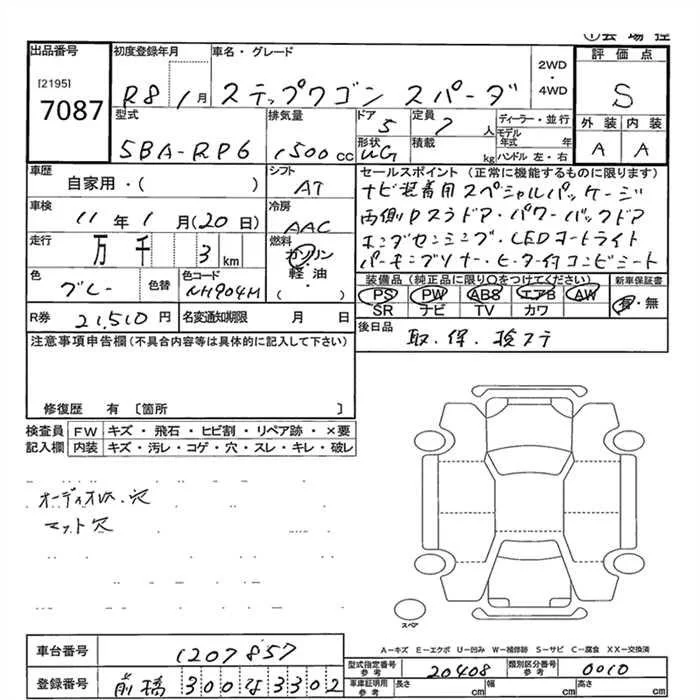 ①会場控
出品番号
[2195]
7087
初度登録年月
R8 1月
車名・グレード
ステップワゴン スパーダ
2WD
・
4WD
評価点
S
型式
5BA-RP6
排気量
1500cc
ドア
5
定員
7人
形状
WG
積載
kg
ディーラー・並行
モデル年式 年
ハンドル 左・右
外装 内装
A A
車歴
自家用・( )
シフト
AT
車検
11年1月(20日)
冷房
AAC
走行
万千 3km
燃料
ガソリン
・
軽・油
( )
色
グレー
色替
色コード
NH904M
セールスポイント(正常に機能するものに限ります)
ナビ装着用スペシャルパッケージ
両側Pスラドア・パワーバックドア
ホンダセンシング・LEDヘッドライト
パーキングソナー・ヒーター付コンビシート
装備品(純正品に限り○をつけてください)
PS PW ABS エアB AW
SR ナビ TV カワ
新車保証書
有・無
R券
21,510円
名変通知期限 月 日
後日品
取・保・検ステ
注意事項申告欄(不具合内容等は具体的に記入して下さい)
修復歴 有 〔箇所 〕
検査員記入欄
FW キズ・飛石・ヒビ割・リペア跡・×要
内装 キズ・汚レ・コゲ・穴・スレ・キレ・破レ
マット穴
スペア
A−キズ E−エクボ U−凹み W−補修跡 S−サビ C−腐食 XX−交換済
車台番号
1207857
登録番号
前橋 300 な 3302
型式指定番号
参考
20408
類別区分番号
参考
0010
車庫証明用
参考
長さ cm
幅 cm
高さ cm